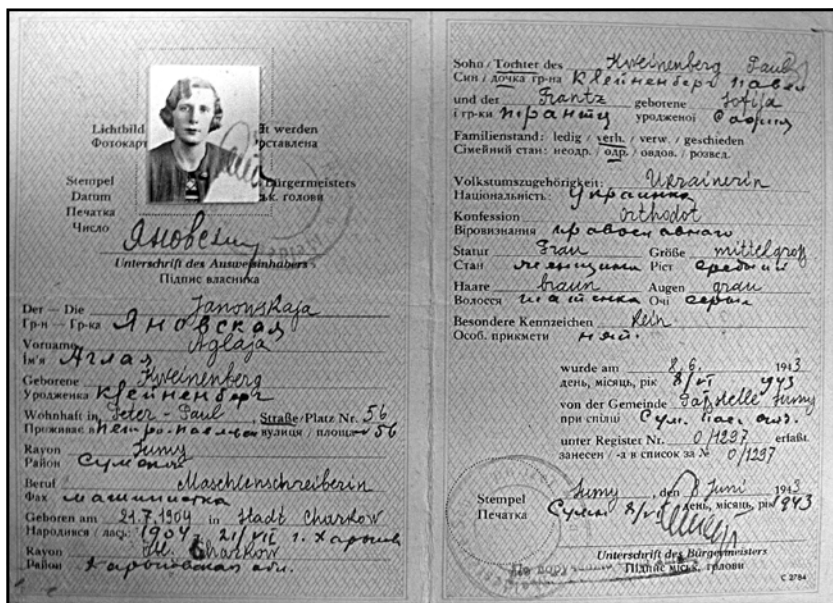 Lichtbild
t werden
Фотокарт
оставлена
Stempel
Bürgermeisters
Datum
ьк. голови
Печатка
Число
Яновскш
Unterschrift des Ausweisinhabers
Підпис власника
Der — Die Janowskaja
Гр-н — Гр-ка Яновская
Vorname Aglaja
Ім'я Аглая
Geborene Kweinenberg
Уродженка Клейненберг
Wohnhaft in Peter-Paul Straße/Platz Nr. 56
Проживає в Петро-Павлов вулиця / площа 56
Rayon Sumy
Район Сумский
Beruf Maschlenschreiberin
Фах машинистка
Geboren am 21.7.1904 in Stadt Charkow
Народився / лась: 1904 21/VII г. Харьков
Rayon Charkow
Район Харьковская обл.
Sohn / Tochter des Kweinenberg Paul
Син / дочка гр-на Клейненберг Павел
und der Frantz geborene Sofija
і гр-ки Франтц уродженої София
Familienstand: ledig / verh. / verw. / geschieden
Сімейний стан: неодр. / одр. / овдов. / розвед.
Volkstumszugehörigkeit: Ukrainerin
Національність: Украинка
Konfession orthodot
Віровизнання православного
Statur Frau Größe mittelgroß
Стан женщина Ріст средний
Haare braun Augen grau
Волосся шатенка Очі серые
Besondere Kennzeichen kein
Особ. прикмети
wurde am 8.6. 1943
день, місяць, рік 8/VI 1943
von der Gemeinde Paßstelle Sumy
при спілці Сум. пас.
unter Register Nr. 0/1297 erfaßt
занесен / -а в список за № 0/1297
Stempel Sumy, den 8 Juni 1943
Печатка Сумы 8/VI день, місяць, рік 1943
Unterschrift des Bürgermeisters
Підпис міськ. голови
C 2784